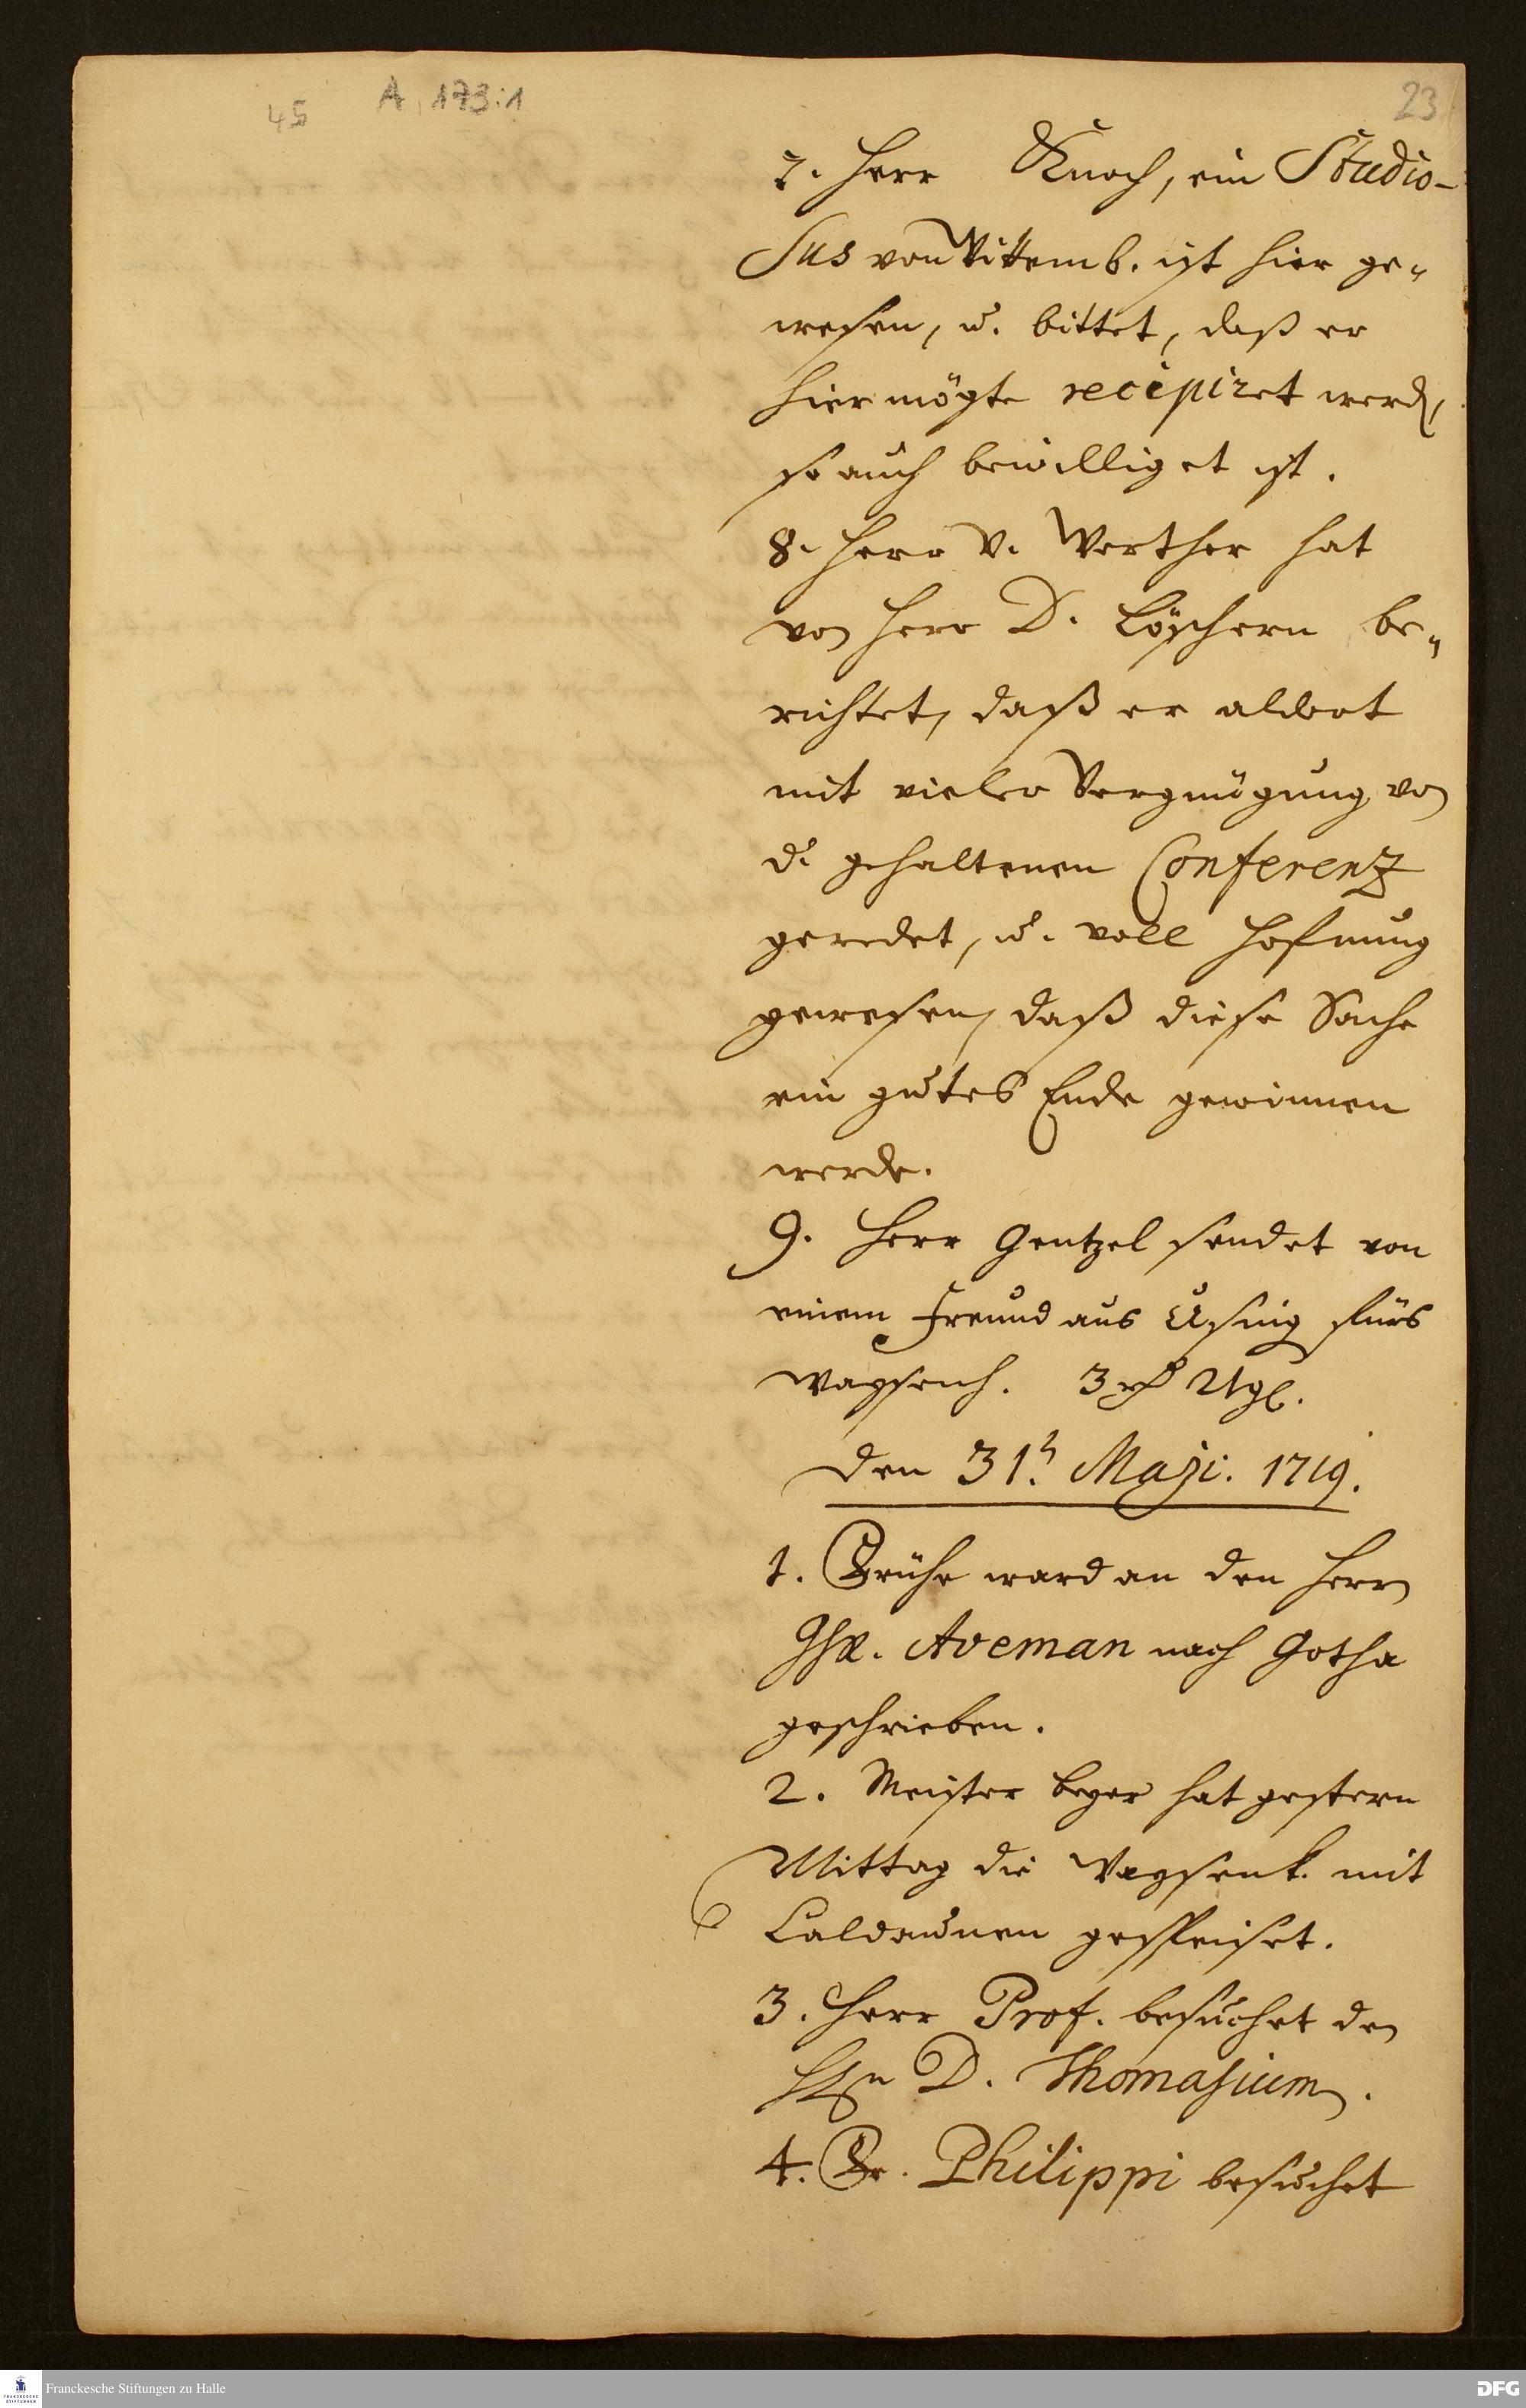 45
A, 173:1
23
7. Herr Knoch, ein Studio-
sus von Wittemb. ist hier ge-
wesen, u. bittet, daß er
hier mögte recipiret werd,
so auch bewilliget ist.
8. Herr v. Werther hat
von Herr D. Löschern be-
richtet, daß er aldort
mit vieler Vergnügung von
d. gehaltenen Conferentz
geredet, u. voll Hofnung
gewesen, daß diese Sache
ein gutes Ende gewinnen
werde.
9. Herr Gentzel sendet von
einem Freund aus fürs
Waysenh. 3
den 31. Maji. 1719.
1. Frühe ward an den Herrn
Aveman nach Gotha
geschrieben.
2. Meister Beyer hat gestern
Mittag die Waysenk. mit
Caldaunen gespeiset.
3. Herr Prof. besuchet den
D. Thomasium.
4. Fr. Philippi besuchet
Franckesche Stiftungen zu Halle
FRANCKESCHE STIFTUNGEN
DFG